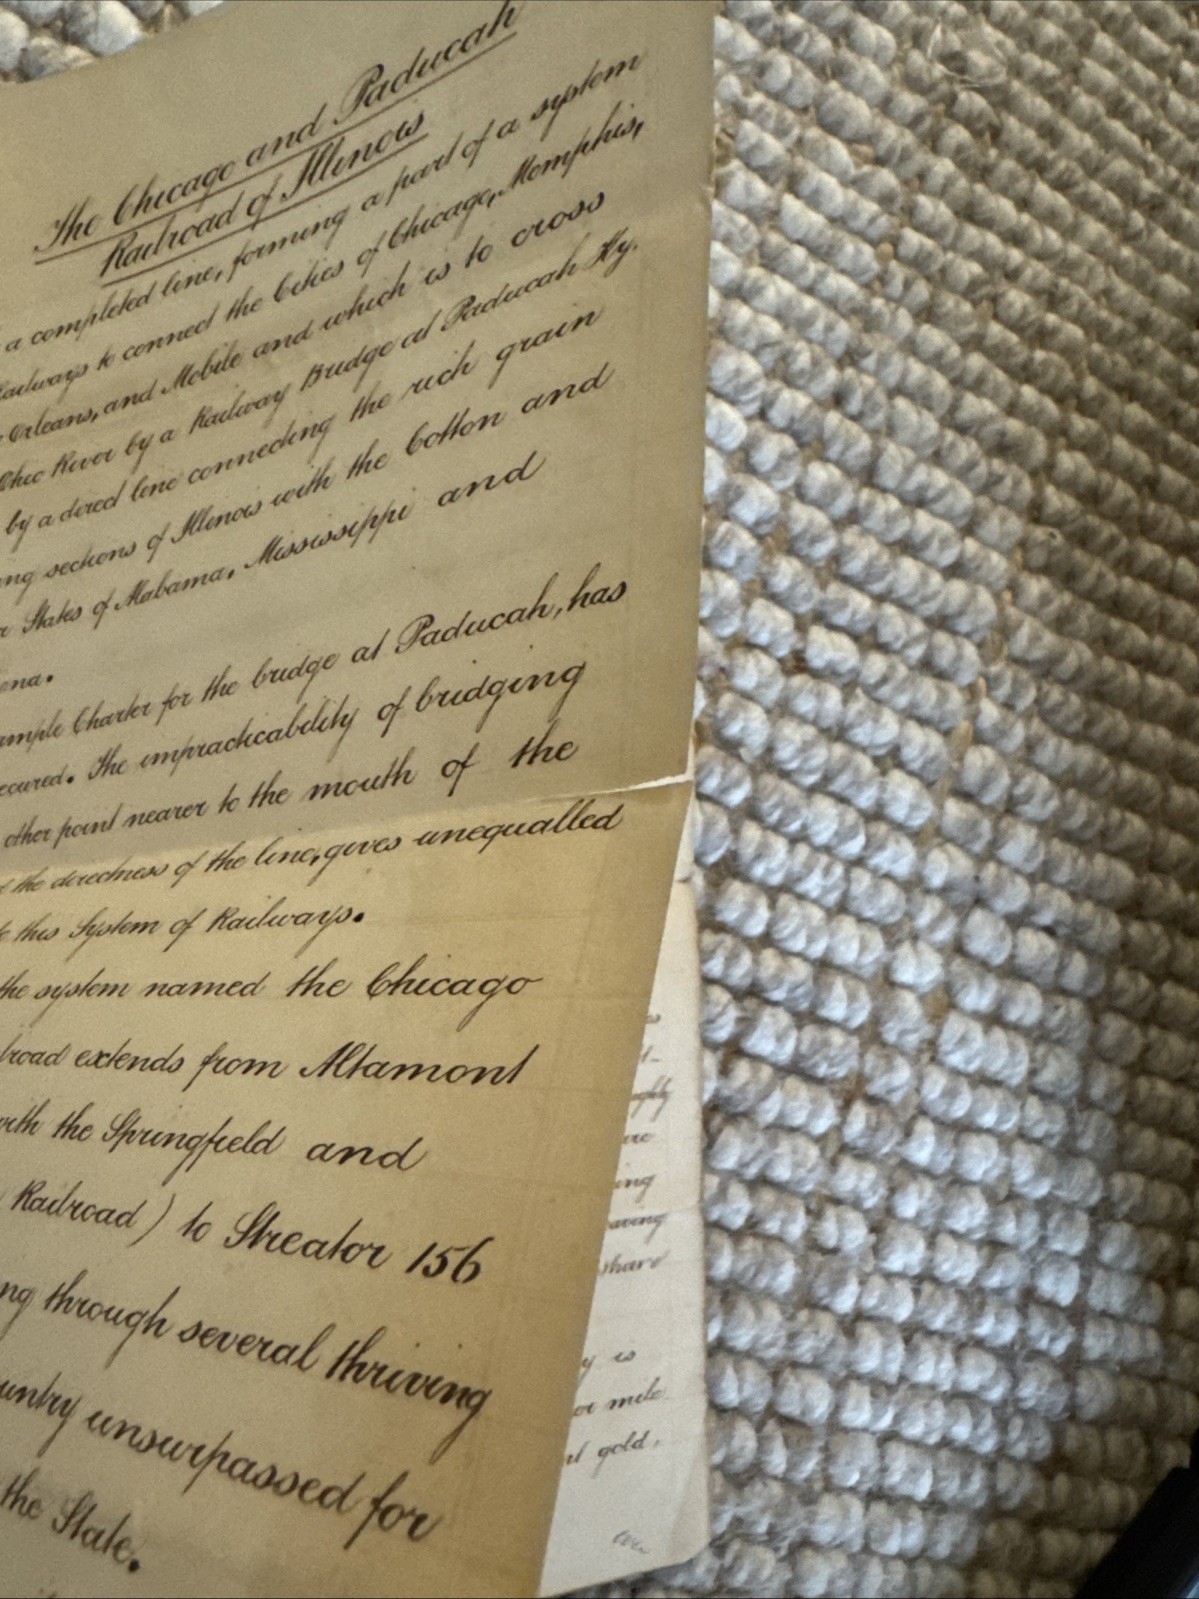 The Chicago and Paducah
Railroad of Illinois
a completed line, forming a part of a system
Railways to connect the Cities of Chicago, Memphis,
Orleans, and Mobile and which is to cross
Ohio River by a Railway Bridge at Paducah Ky.
by a direct line connecting the rich grain
ng sections of Illinois with the Cotton and
States of Alabama, Mississippi and
ana.
ample Charter for the bridge at Paducah, has
ecured. The impracticability of bridging
other point nearer to the mouth of the
the directness of the line, gives unequalled
this System of Railways.
the system named the Chicago
lroad extends from Altamont
with the Springfield and
Railroad) to Streator 156
ng through several thriving
untry unsurpassed for
the State.
ing
aving
share
y is
or mile
gold,